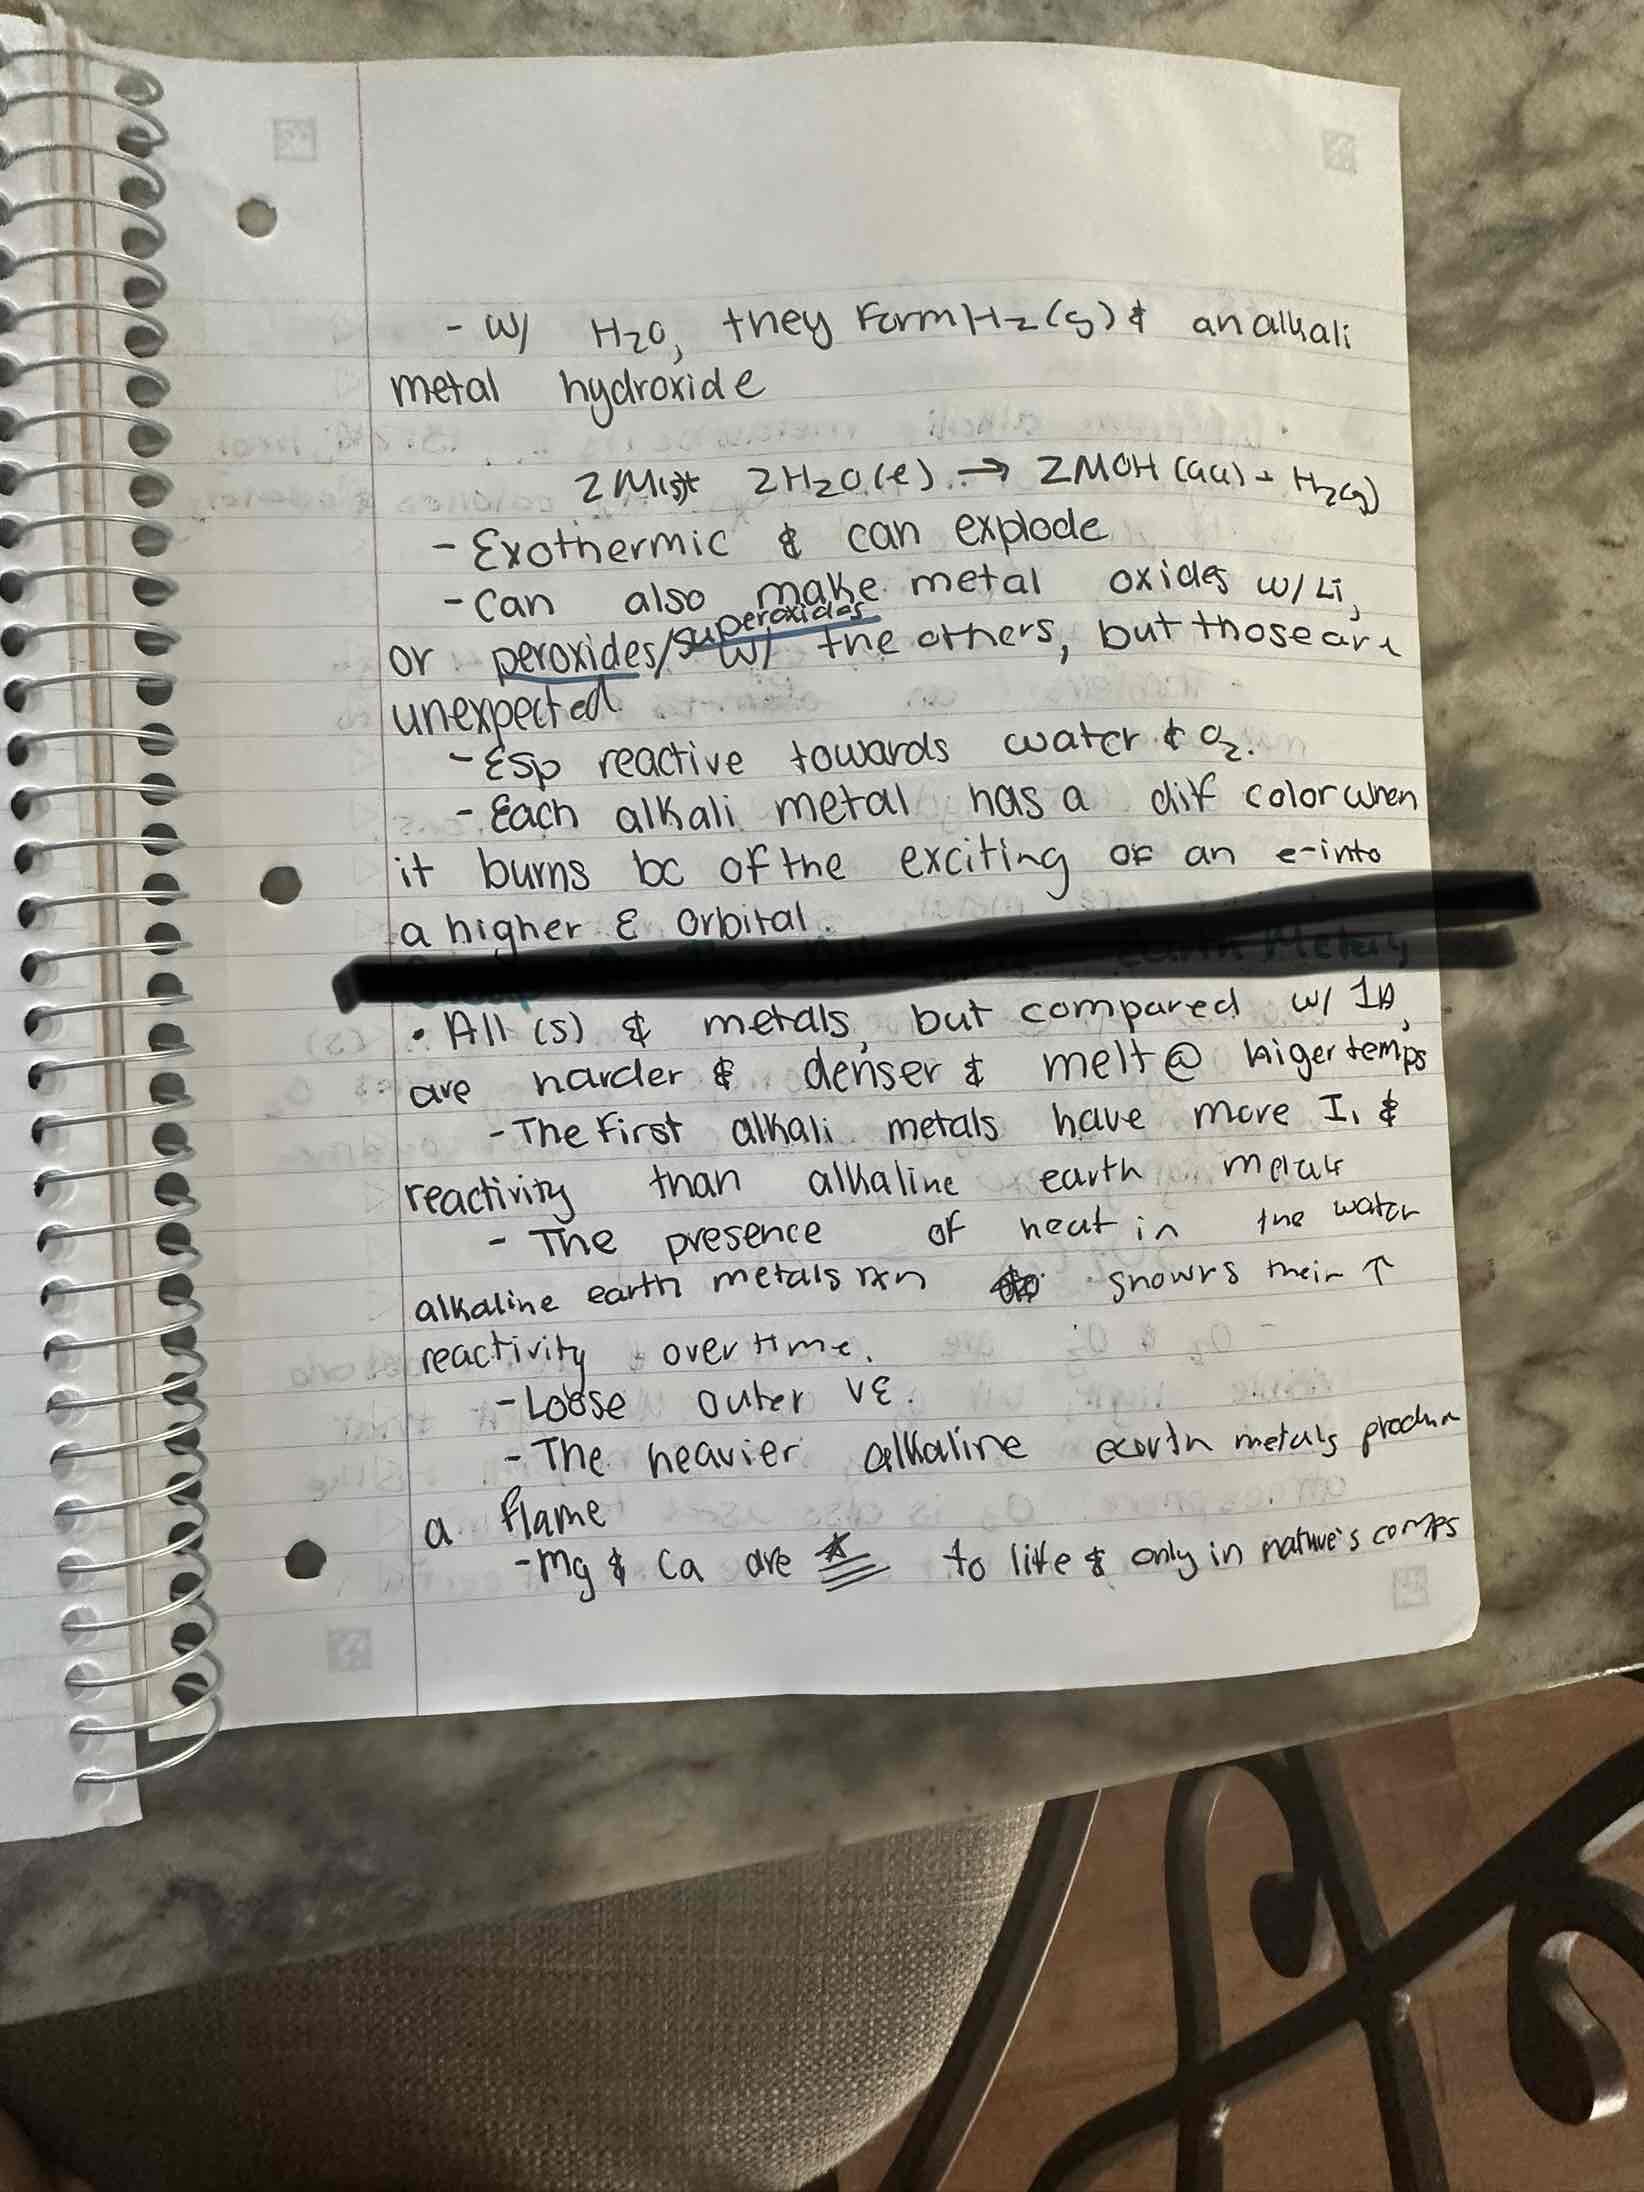 - w/ H2O, they form H2(g) & an alkali
metal hydroxide
2M(s)+ 2H2O(l) → 2MOH(aq) + H2(g)
- Exothermic & can explode
- can also make metal oxides w/ Li,
superoxides
or peroxides/ w/ the others, but those are
unexpected
- Esp reactive towards water & O2.
- Each alkali metal has a diff color when
it burns bc of the exciting of an e- into
a higher E orbital.
Earth Metals
• All (s) & metals, but compared w/ 1A,
are harder & denser & melt @ higer temps
- The first alkali metals have more I1 &
reactivity than alkaline earth metals
- The presence of heat in the water
alkaline earth metals rxn shows their ↑
reactivity over time.
- Loose outer VE.
- The heavier alkaline earth metals produce
a flame
- Mg & Ca are ☆ to life & only in nature's comps